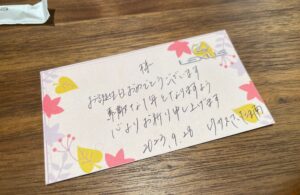 様
お誕生日おめでとうございます
素敵な1年となりますよう
心よりお祈り申し上げます
2023.9.28